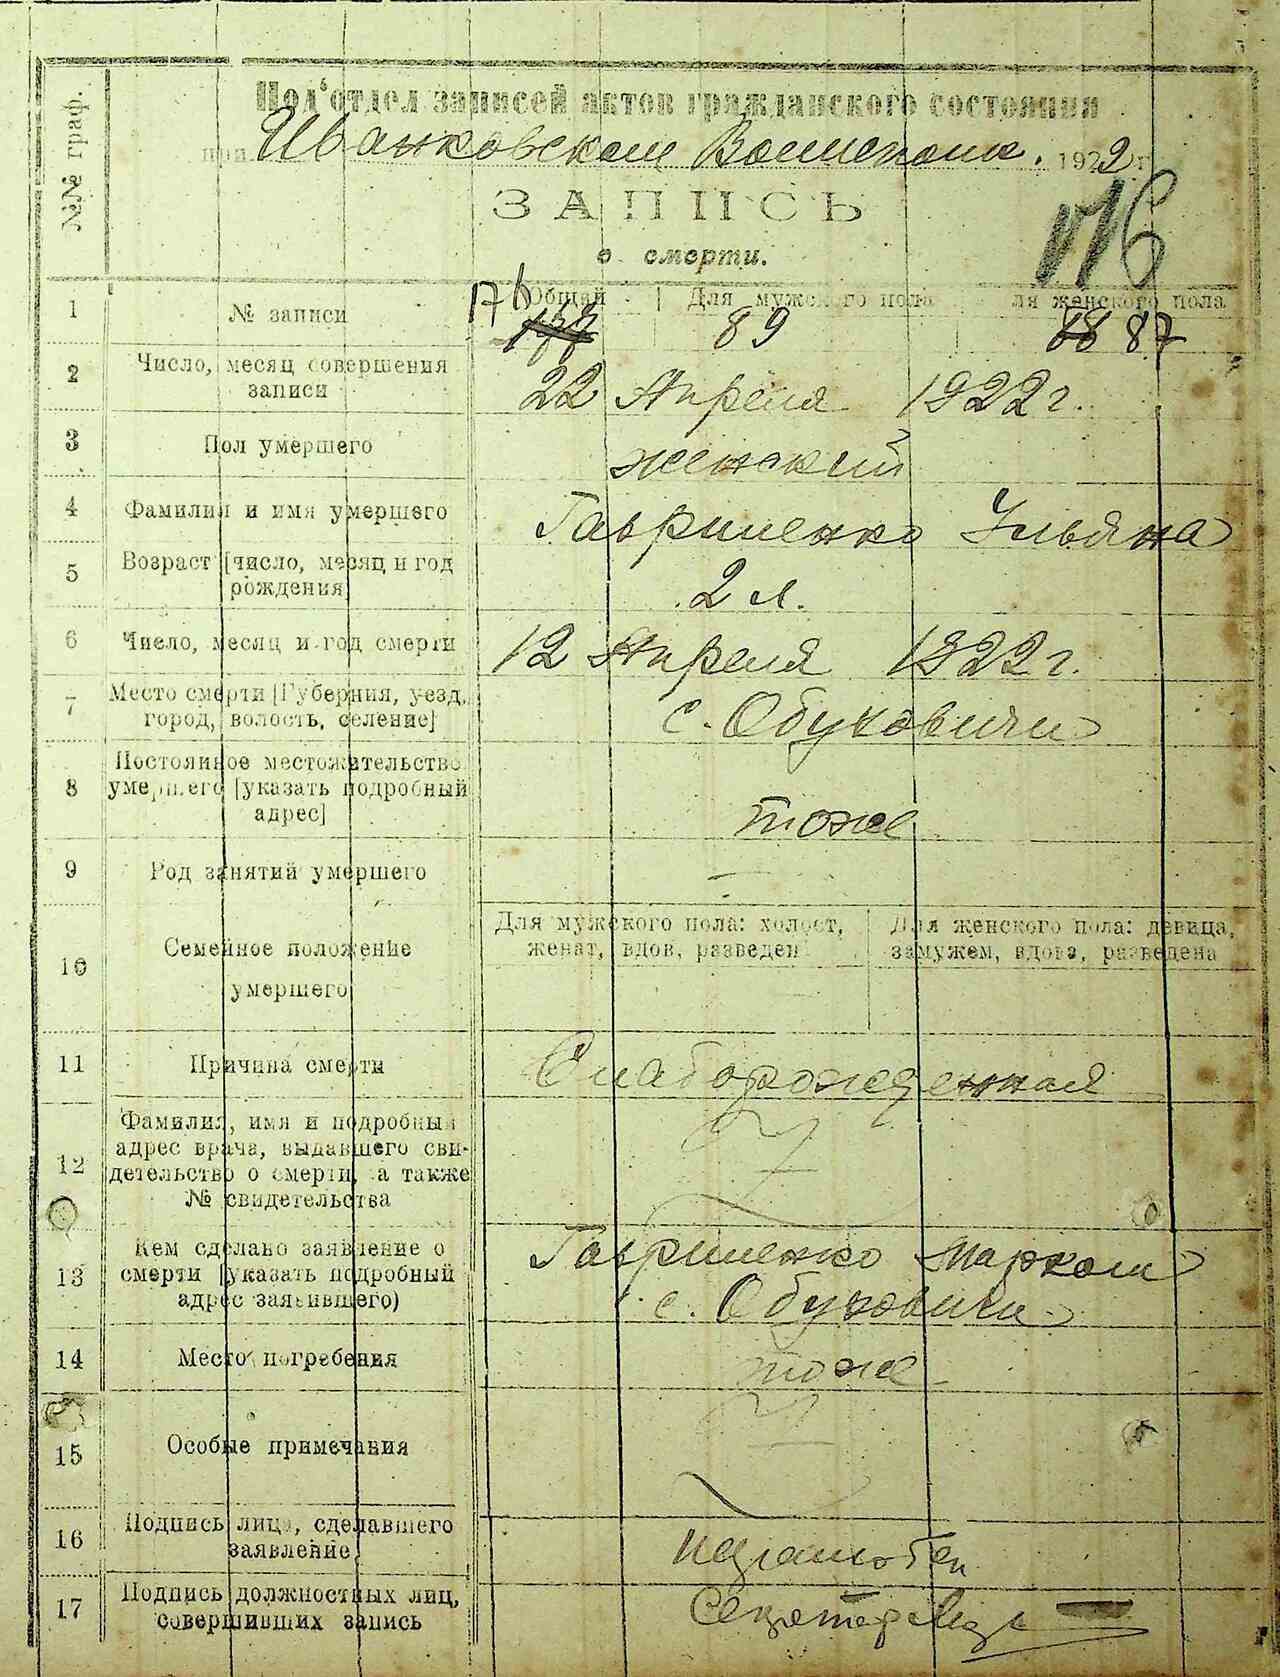 №№ граф.
Под'отдел записей актов гражданского состояния
при Иванковском Волисполк. 1922 г.
ЗАПИСЬ
о смерти.
176
1 № записи 176 Общий Для мужского пола Для женского пола
177 89 88 87
2 Число, месяц совершения
записи 22 Апреля 1922 г.
3 Пол умершего женский
4 Фамилия и имя умершего Гавриленко Ульяна
5 Возраст [число, месяц и год
рождения] 2 л.
6 Число, месяц и год смерти 12 Апреля 1922 г.
7 Место смерти [Губерния, уезд,
город, волость, селение] с. Обуховичи
8 Постоянное местожительство
умершего [указать подробный
адрес] тоже
9 Род занятий умершего —
10 Семейное положение
умершего
Для мужского пола: холост,
женат, вдов, разведен
Для женского пола: девица,
замужем, вдова, разведена
11 Причина смерти Слаборожденная
12 Фамилия, имя и подробный
адрес врача, выдавшего сви-
детельство о смерти, а также
№ свидетельства
13 Кем сделано заявление о
смерти [указать подробный
адрес заявившего)
Гавриленко Марком
с. Обуховичи
14 Место погребения тоже
15 Особые примечания
16 Подпись лица, сделавшего
заявление неграмотен
17 Подпись должностных лиц,
совершивших запись Секретарь